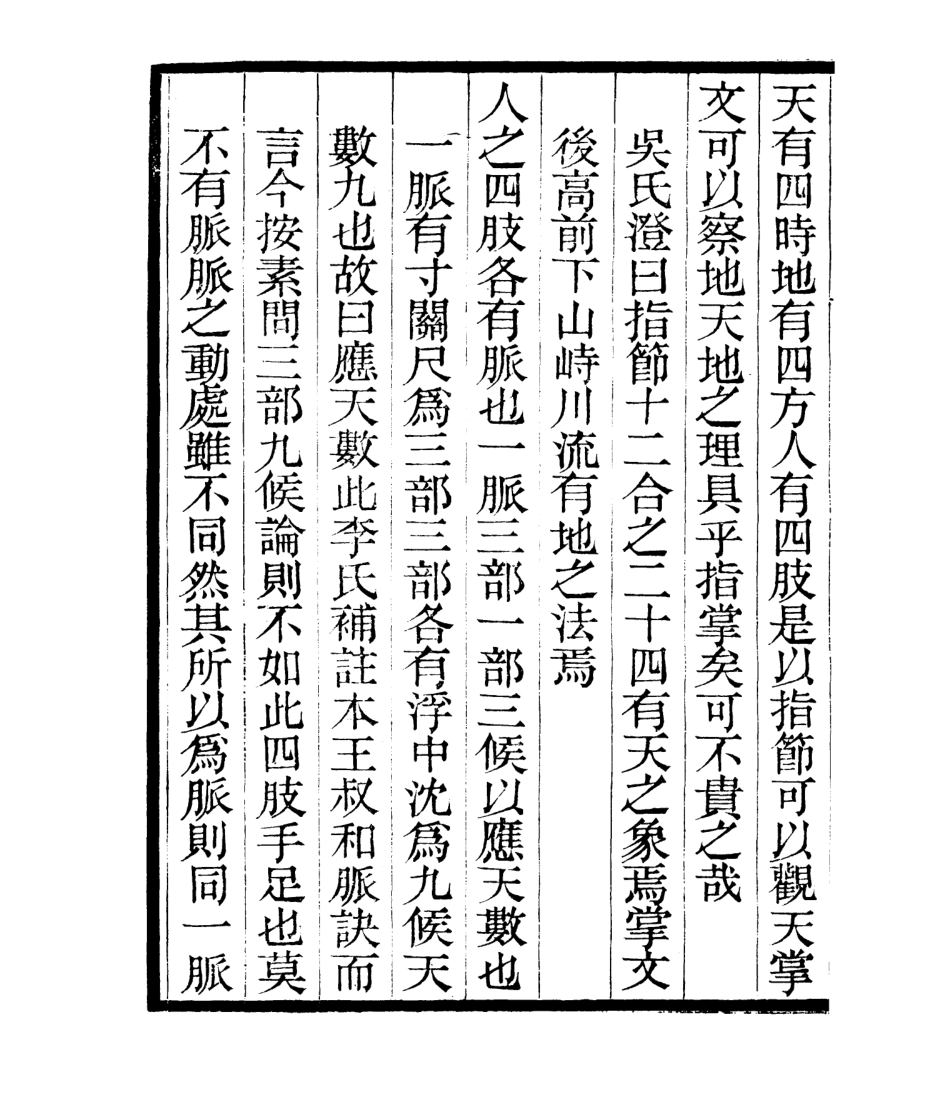 天有四時地有四方人有四肢是以指節可以觀天掌
文可以察地天地之理具乎指掌矣可不貴之哉
吳氏澄曰指節十二合之二十四有天之象焉掌文
後高前下山峙川流有地之法焉
人之四肢各有脈也一脈三部一部三候以應天數也
一脈有寸關尺爲三部三部各有浮中沈爲九候天
數九也故曰應天數此李氏補註本王叔和脈訣而
言今按素問三部九候論則不如此四肢手足也莫
不有脈脈之動處雖不同然其所以爲脈則同一脈